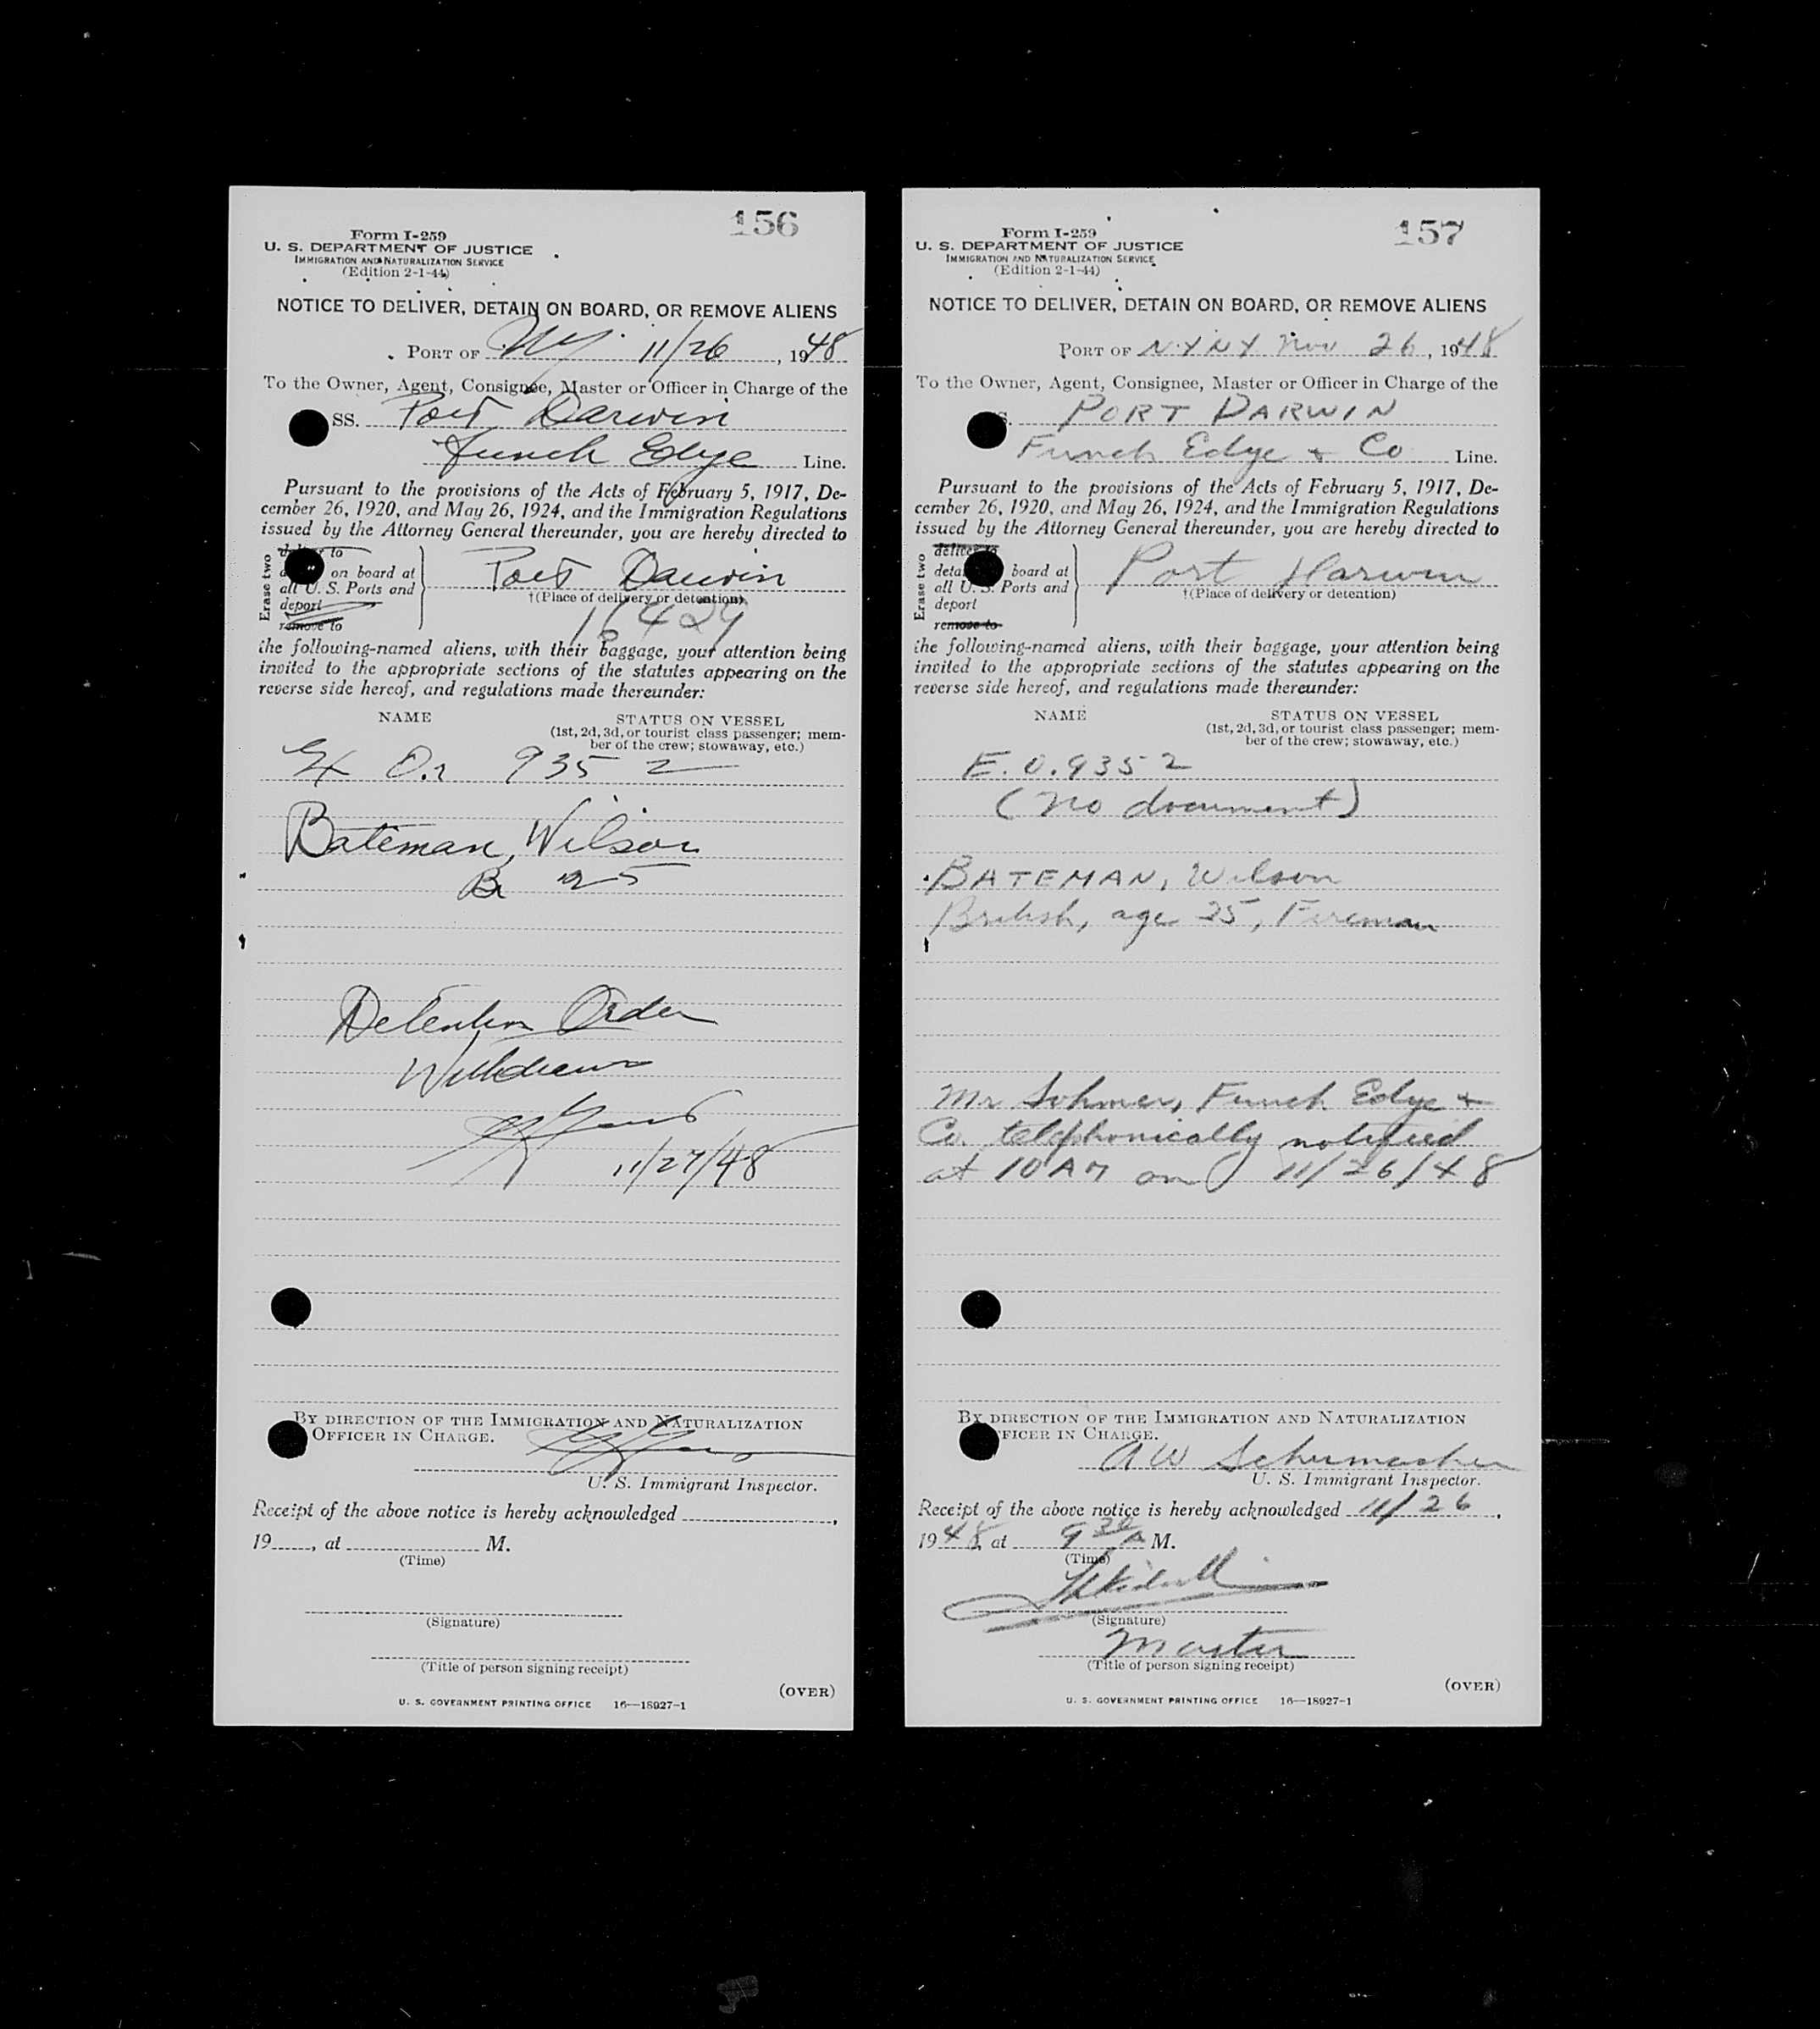 156
Form I-259
U. S. DEPARTMENT OF JUSTICE
IMMIGRATION AND NATURALIZATION SERVICE
(Edition 2-1-44)
NOTICE TO DELIVER, DETAIN ON BOARD, OR REMOVE ALIENS
PORT OF NY 11/26, 1948
To the Owner, Agent, Consignee, Master or Officer in Charge of the
SS. Port Darwin
Funch Edye Line.
Pursuant to the provisions of the Acts of February 5, 1917, De-
cember 26, 1920, and May 26, 1924, and the Immigration Regulations
issued by the Attorney General thereunder, you are hereby directed to
Erase two
to
on board at
all U. S. Ports and
deport
remove to
Port Darwin
†(Place of delivery or detention)
16429
the following-named aliens, with their baggage, your attention being
invited to the appropriate sections of the statutes appearing on the
reverse side hereof, and regulations made thereunder:
NAME STATUS ON VESSEL
(1st, 2d, 3d, or tourist class passenger; mem-
ber of the crew; stowaway, etc.)
Ex Or 9352
Bateman, Wilson
Br 25
Detention Order
Withdrawn
11/27/48
BY DIRECTION OF THE IMMIGRATION AND NATURALIZATION
OFFICER IN CHARGE.
U. S. Immigrant Inspector.
Receipt of the above notice is hereby acknowledged
19 , at M.
(Time)
(Signature)
(Title of person signing receipt)
(OVER)
U. S. GOVERNMENT PRINTING OFFICE 16—18927-1
157
Form I-259
U. S. DEPARTMENT OF JUSTICE
IMMIGRATION AND NATURALIZATION SERVICE
(Edition 2-1-44)
NOTICE TO DELIVER, DETAIN ON BOARD, OR REMOVE ALIENS
PORT OF N.Y NY Nov 26, 1948
To the Owner, Agent, Consignee, Master or Officer in Charge of the
S. PORT DARWIN
Funch Edye & Co Line.
Pursuant to the provisions of the Acts of February 5, 1917, De-
cember 26, 1920, and May 26, 1924, and the Immigration Regulations
issued by the Attorney General thereunder, you are hereby directed to
Erase two
deliver to
board at
all U. S. Ports and
deport
remove to
Port Darwin
†(Place of delivery or detention)
the following-named aliens, with their baggage, your attention being
invited to the appropriate sections of the statutes appearing on the
reverse side hereof, and regulations made thereunder:
NAME STATUS ON VESSEL
(1st, 2d, 3d, or tourist class passenger; mem-
ber of the crew; stowaway, etc.)
E.O. 9352
(no document)
BATEMAN, Wilson
British, age 25, Fireman
Mr Sohmer, Funch Edye &
Co. telephonically notified
at 10 AM on 11/26/48
BY DIRECTION OF THE IMMIGRATION AND NATURALIZATION
FICER IN CHARGE.
A W Schumacher
U. S. Immigrant Inspector.
Receipt of the above notice is hereby acknowledged 11/26,
1948, at 9 30 A M.
(Time)
(Signature)
Master
(Title of person signing receipt)
(OVER)
U. S. GOVERNMENT PRINTING OFFICE 16—18927-1